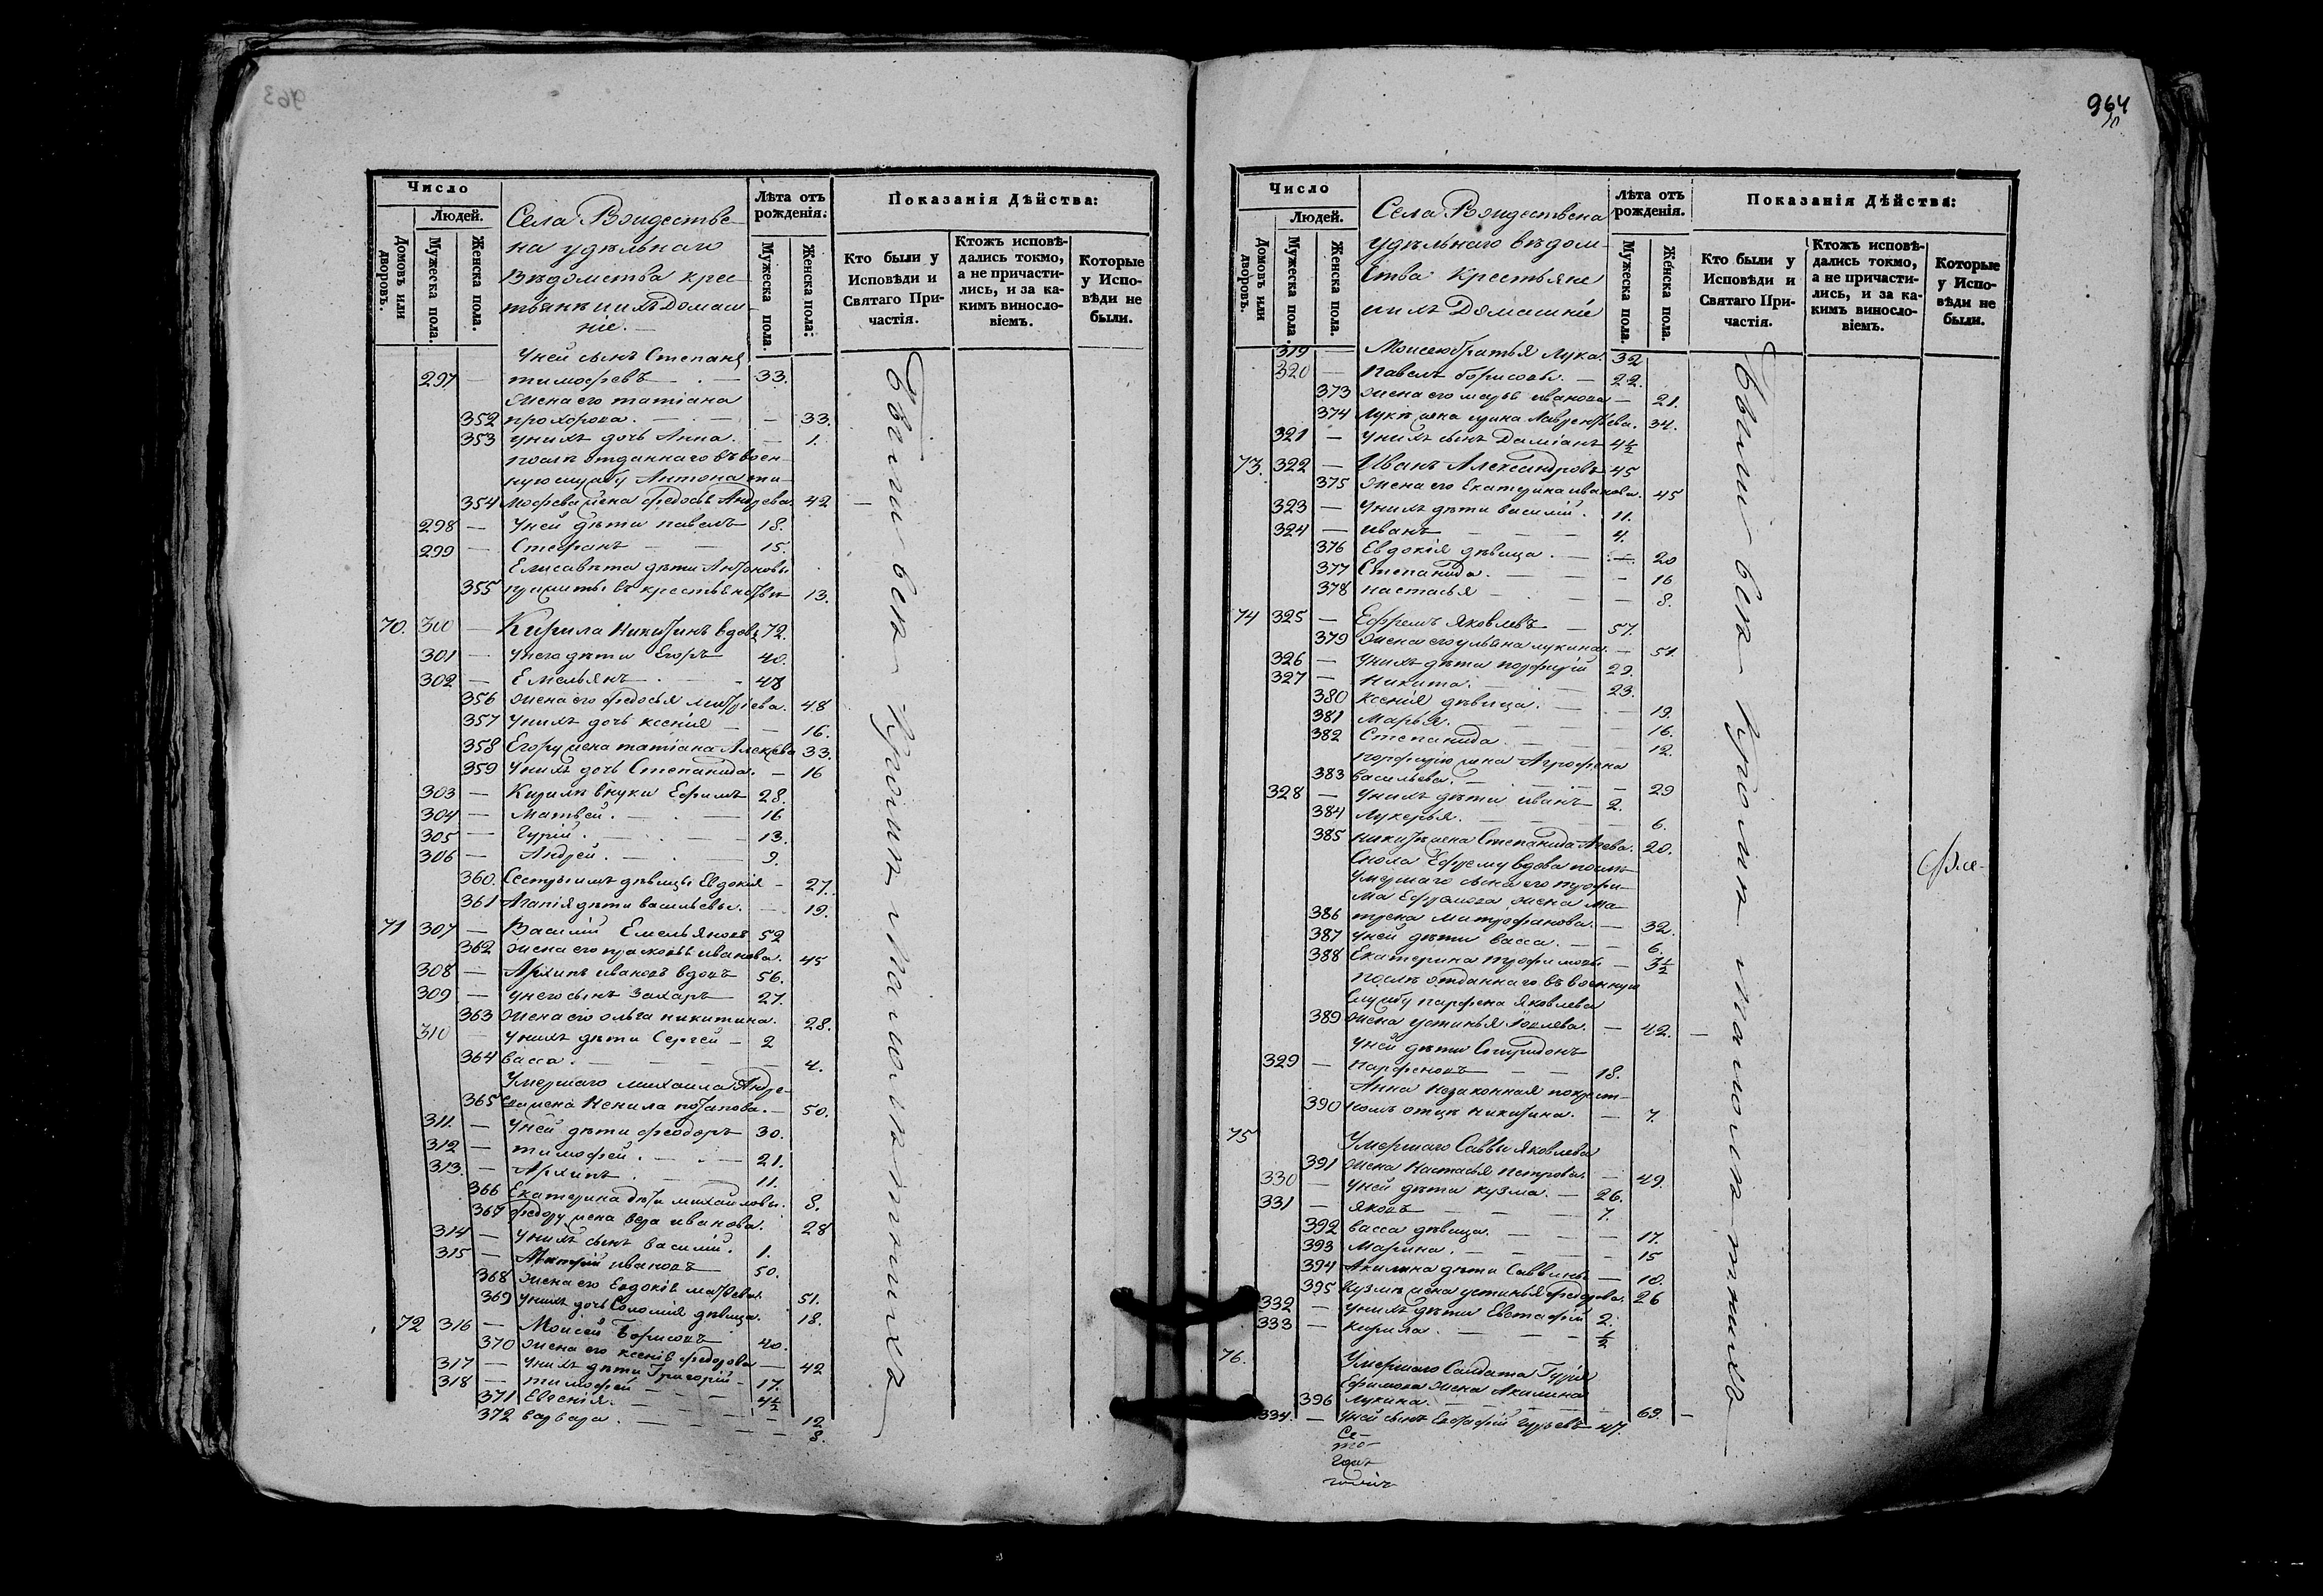 963
Число
Людей.
Домовъ или дворовъ.
Мужеска пола.
Женска пола.
Села Рождестве-
на удѣльнаго
Вѣдомства крес-
тьянѣ и ихъ Домаш-
ніе. —
Лѣта отъ рожденія:
Мужеска пола.
Женска пола:
Показанія Дѣйства:
Кто были у Исповѣди и Святаго Причастія.
Ктожъ исповѣдались токмо, а не причастились, и за какимъ винословіемъ.
Которые у Исповѣди не были.
У ней сынъ Степанъ
297 — тимофѣевъ — 33.
Жена его татіана
352 прохорова. — — 33.
353 у нихъ дочь Анна. — 1.
послѣ отданнаго въ воен-
ную службу Антона ти-
354 мофеева жена федосья Андреева. 42 —
298 — У ней дѣти павелъ 18.
299 — Стефанъ — — 15.
Елисавета дѣти Антоновы
355 13.
70. 300 — Кирила Никитинъ вдовъ 72.
301 — У него дѣти Егоръ 40.
302 — Емельянъ — 48
356 жена его федосья 48
357 У нихъ дочь ксенія — — 16.
358 Егору жена татіана Алексѣева 33.
359 У нихъ дочь Степанида. — 16
303 — Кирилѣ внуки Ефимъ 28.
304 — Матвей. — — 16
305 — Гурій. — — 13.
306 — Андрей. — — 9.
360. Сестры ихъ дѣвицы Евдокія — 27.
361 Агапія дѣти васильевы. — 19.
71 307 — Василій Емельяновъ 52
362 жена его прасковья иванова. 45
308 — Архипъ ивановъ вдовъ 56.
309 — У него сынъ Захаръ 27.
363 жена его ольга никитина. 28.
310 — У нихъ дѣти Сергей — 2
364 васса. — — — 4.
Умершаго михаила Андре-
365 ева жена Ненила потапова. — 50.
311. — У ней дѣти феодоръ 30.
312 — тимофей. — — 21.
313. — Архипъ — — 11.
366 Екатерина дѣти михаиловы. 8.
367 федору жена вера иванова. 28
314 — У нихъ сынъ василій. 1.
315 — ивановъ 50.
368 жена его Евдокія 51.
369 у нихъ дочь Соломія дѣвица. 18.
72 316 — Моисей Борисовъ 40.
370 жена его ксенія федорова — 42
317 — У нихъ дѣти Григорій — 17.
318 — тимофей — — 4½
371 Евгенія. — — — 12
372 варвара. — — — 8.
Были вси кромѣ малолѣтнихъ
964
10
Число
Людей.
Домовъ или дворовъ.
Мужеска пола.
Женска пола.
Села Рождествена
удѣльнаго вѣдом-
ства Крестьяне
и ихъ Домашніе
Лѣта отъ рожденія.
Мужеска пола.
Женска пола.
Показанія Дѣйства:
Кто были у Исповѣди и Святаго Причастія.
Ктожъ исповѣдались токмо, а не причастились, и за какимъ винословіемъ.
Которые у Исповѣди не были.
319 — Моисею братья лука. 32
320 — Павелъ борисовы. — 22.
373 жена его марья иванова — 21.
374 Лукѣ жена ирина Лаврентьева. 34.
321 — У нихъ сынъ Даміанъ 4½
73. 322 — Иванъ Александровъ 45
375 жена его Екатерина иванова. 45
323 — У нихъ дѣти василій. 11.
324 — иванъ — — — 4.
376 Евдокія дѣвица. — — 20
377 Степанида. — — — 16
378 настасья — — — 8.
74 325 — Ефремъ яковлевъ — 57.
379 жена его ульяна лукина. — 51.
326 — У нихъ дѣти порфирій 29.
327 — Никита. — — 23.
380 ксенія дѣвица. — — 19.
381 Марья. — — — 16.
382 Степанида — — — 12.
порфирію жена Агрофена
383 васильева. — — — 29
328 — У нихъ дѣти иванъ 2.
384 лукерья. — — — 6.
385 никитѣ жена Степанида 20.
Снова Ефрему вдова послѣ
умершаго сына его трофи-
ма Ефремова жена ма-
386 трена митрофанова. — 32.
387 у ней дѣти васса. — — 6.
388 Екатерина трофимовы — 3½
Послѣ отданнаго въ военную
Службу парфена яковлева
389 жена устинья — 42. —
У ней дѣти Спиридонъ
329 — Парфеновъ — — 18.
Анна незаконная
390 отцѣ никитина. — 7.
75 Умершаго Саввы яковлева
391 жена Настасья петрова. — 49.
330 — У ней дѣти кузма. — 26.
331 — яковъ — — — 7.
392 васса дѣвица. — — 17.
393 Марина. — — — 15
394 Акилина дѣти Саввины — 10.
395 кузмѣ жена устинья федорова. 26
332 — У нихъ дѣти Евстафій 2.
333 — кирила. — — — ½
76. Умершаго Солдата Гурія
Ефимова жена Акилина
396 лукина. — — — 69. —
334 — У ней сынъ Евстафій гурьевъ 47.
Се-